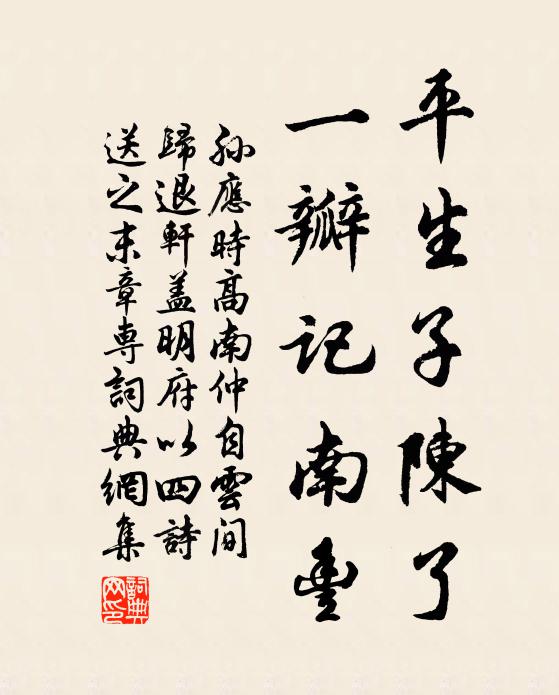 平生子陳了
一瓣記南豐
孫應時高南仲自雲间
歸退軒蓋明府以四詩
送之末章専詞典網集
詞典网印